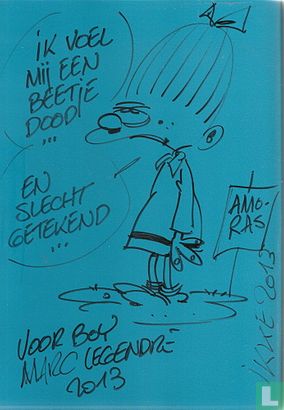 iK VOEL
Mij EEN
BEETJE
DOODJE
...
EN
SLECHT
GETEKEND
...
AMO-
RAS
VOOR BOY
MARC LEGENDRE
2013
2013